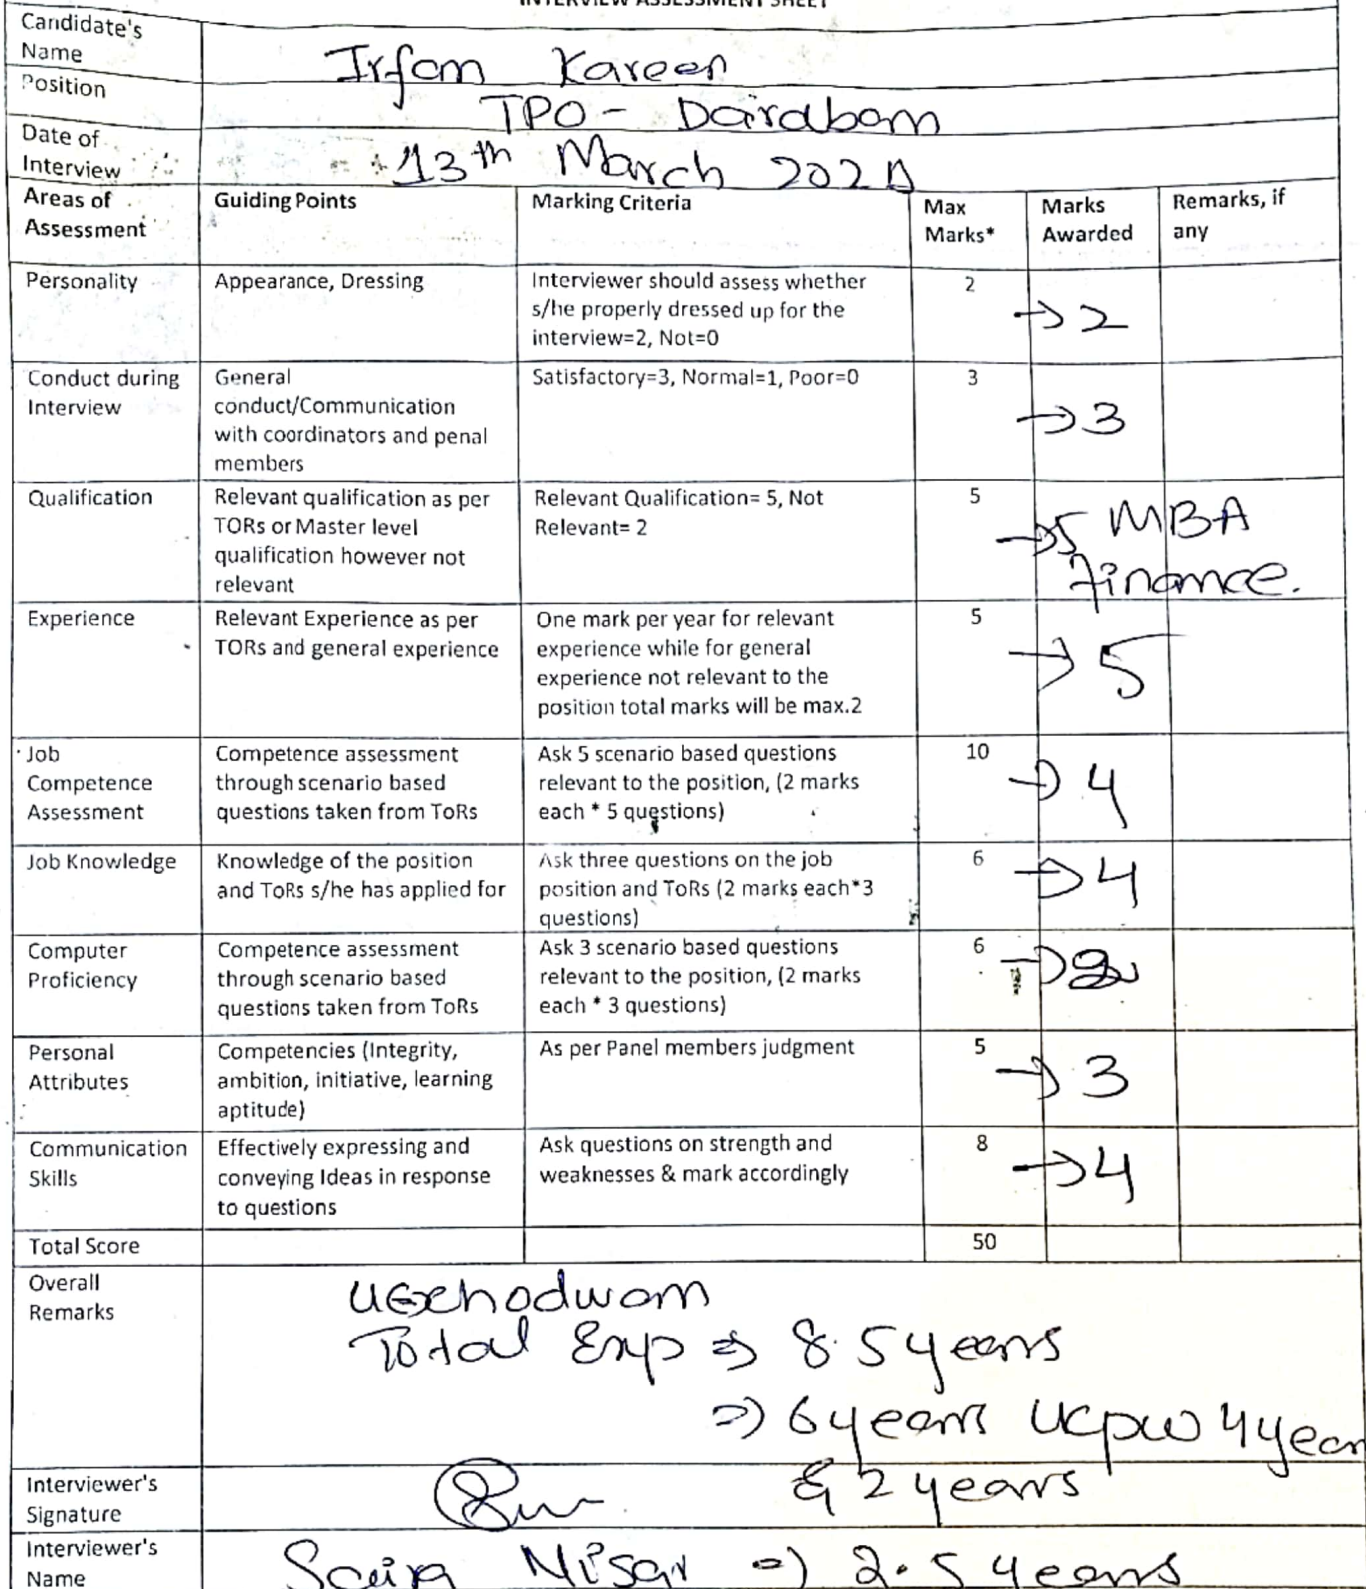 INTERVIEW ASSESSMENT SHEET
Candidate's
Name
Irfan Kareem
Position
TPO - Dairdbam
Date of
Interview
13th March 202
Areas of
Assessment
Guiding Points
Marking Criteria
Max
Marks*
Marks
Awarded
Remarks, if
any
Personality
Appearance, Dressing
Interviewer should assess whether
s/he properly dressed up for the
interview=2, Not=0
2
→ 2
Conduct during
Interview
General
conduct/Communication
with coordinators and penal
members
Satisfactory=3, Normal=1, Poor=0
3
→ 3
Qualification
Relevant qualification as per
TORs or Master level
qualification however not
relevant
Relevant Qualification= 5, Not
Relevant= 2
5
→ 5 MBA
Finance.
Experience
Relevant Experience as per
TORs and general experience
One mark per year for relevant
experience while for general
experience not relevant to the
position total marks will be max.2
5
→ 5
Job
Competence
Assessment
Competence assessment
through scenario based
questions taken from ToRs
Ask 5 scenario based questions
relevant to the position, (2 marks
each * 5 questions)
10
→ 4
Job Knowledge
Knowledge of the position
and ToRs s/he has applied for
Ask three questions on the job
position and ToRs (2 marks each*3
questions)
6
→ 4
Computer
Proficiency
Competence assessment
through scenario based
questions taken from ToRs
Ask 3 scenario based questions
relevant to the position, (2 marks
each * 3 questions)
6
→ 2
Personal
Attributes
Competencies (Integrity,
ambition, initiative, learning
aptitude)
As per Panel members judgment
5
→ 3
Communication
Skills
Effectively expressing and
conveying Ideas in response
to questions
Ask questions on strength and
weaknesses & mark accordingly
8
→ 4
Total Score
50
Overall
Remarks
Total Exp ⇒ 8.5 years
⇒ 6 years UCPW 4 year
& 2 years
Interviewer's
Signature
Interviewer's
Name
Saira Nisar ⇒ 2.5 years